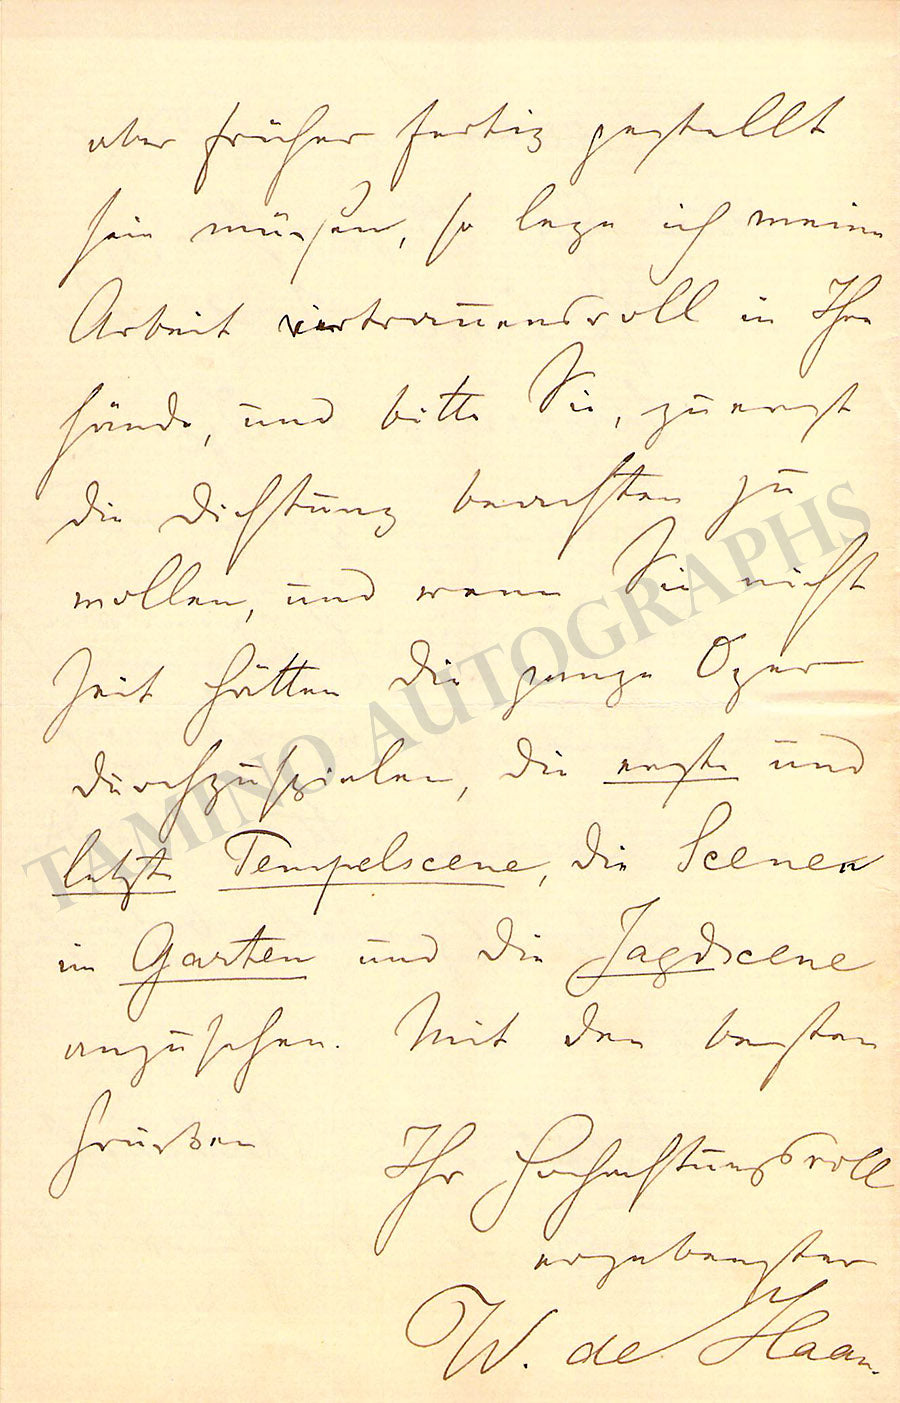 aber früher fertig gestellt
sein müssen, so lege ich meine
Arbeit vertrauensvoll in Ihre
Hände, und bitte Sie, zuerst
die Dichtung beachten zu
wollen, und wenn Sie nicht
Zeit hätten die ganze Oper
durchzuspielen, die erste und
letzte Tempelscene, die Scenen
im Garten und die Jagdscene
anzusehen. Mit den besten
Grüßen
Ihr Hochachtungsvoll
ergebenster
W. de Haan.
TAMINO AUTOGRAPHS